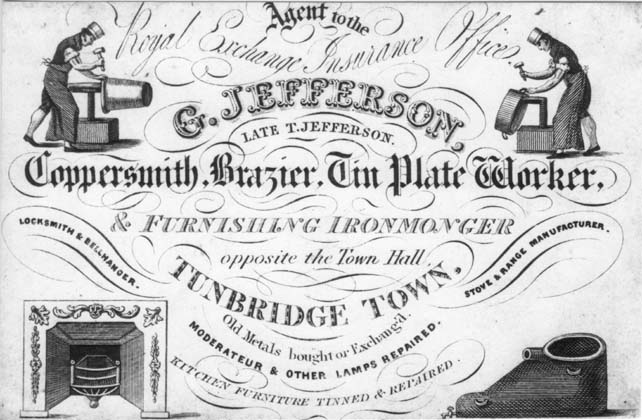 Agent to the
Royal Exchange Insurance Office.
G. JEFFERSON,
LATE T. JEFFERSON.
Coppersmith, Brazier, Tin Plate Worker,
& FURNISHING IRONMONGER
LOCKSMITH & BELLHANGER.
opposite the Town Hall,
STOVE & RANGE MANUFACTURER.
TUNBRIDGE TOWN,
Old Metals bought or Exchang'd.
MODERATEUR & OTHER LAMPS REPAIRED.
KITCHEN FURNITURE TINNED & REPAIRED.